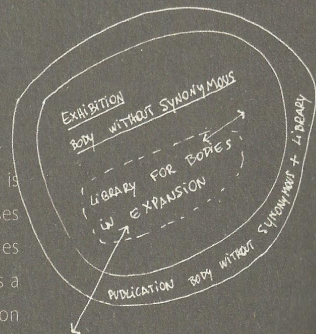 EXHIBITION
BODY WITHOUT SYNONYMOUS
LIBRARY FOR BODIES
IN EXPANSION
PUBLICATION BODY WITHOUT SYNONYMOUS + LIBRARY
is
ses
es
s a
on